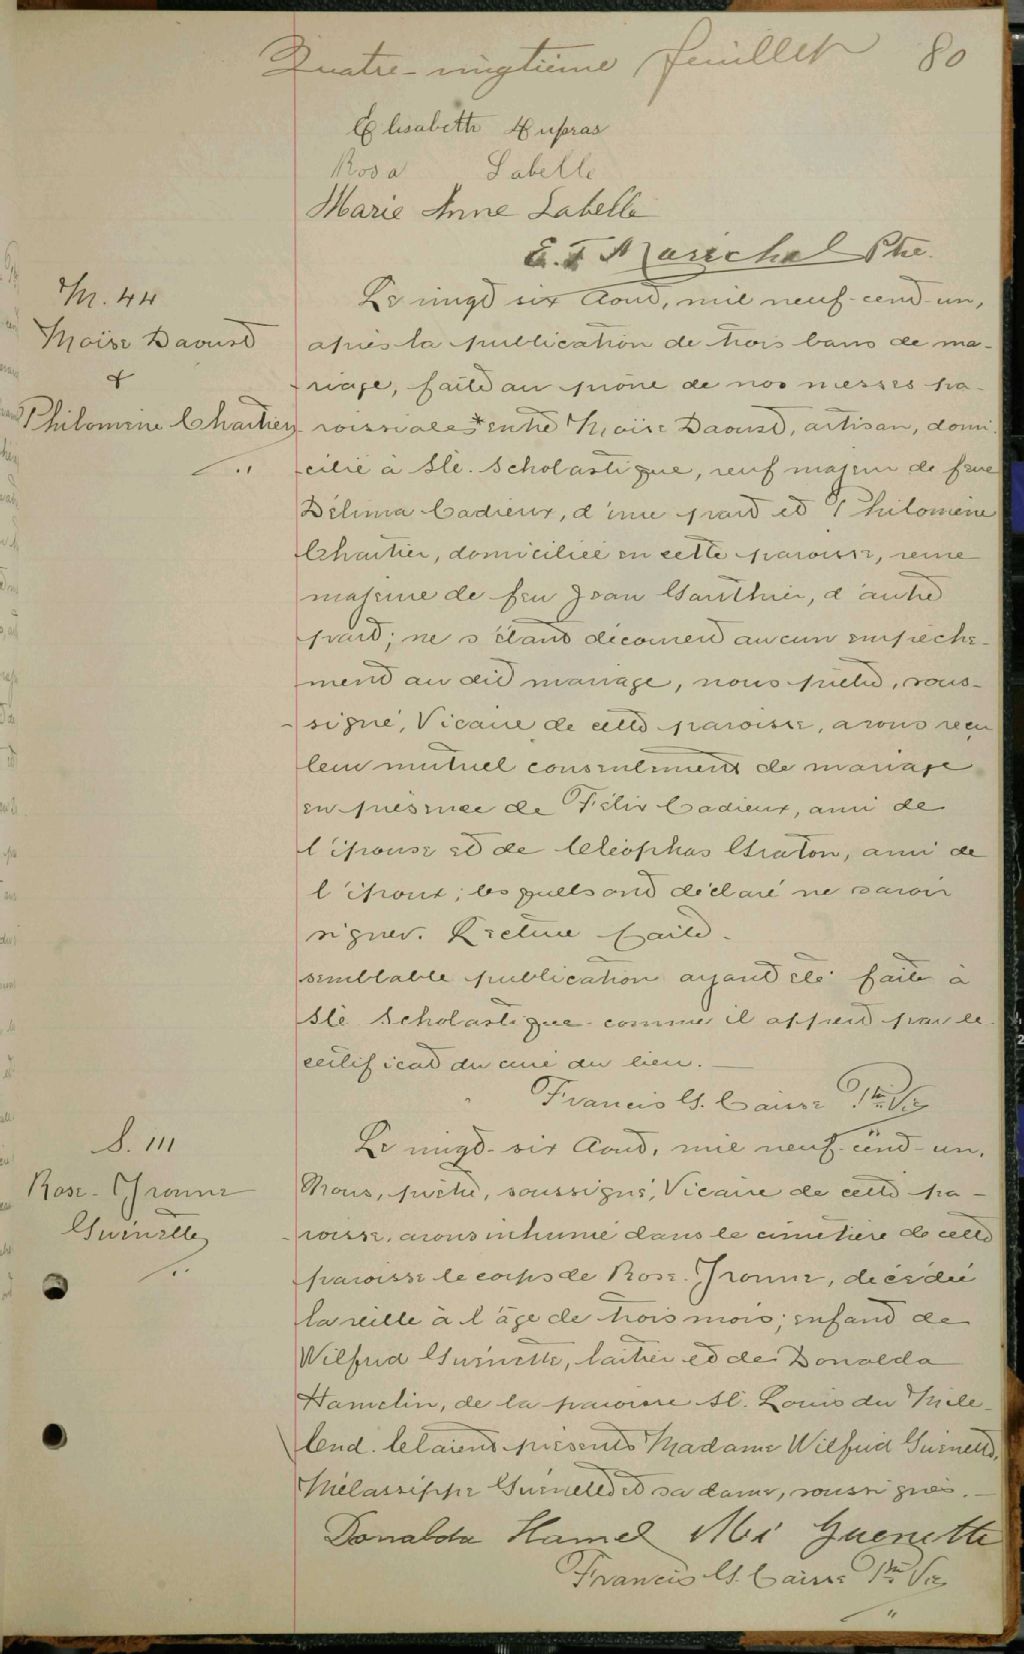 Quatre-vingtième feuillet 80
Elisabeth Dupras
Rosa Labelle
Marie Anne Labelle
E. T. Maréchal Ptre.
M. 44
Moïse Daoust
&
Philomène Chartier
Le vingt six Aout, mil neuf-cent-un,
après la publication de trois bans de ma-
riage, faite au prône de nos messes pa-
roissiales * entre Moïse Daoust, artisan, domi-
cilié à Ste. Scholastique, veuf majeur de feue
Délima Cadieux, d'une part et Philomène
Chartier, domiciliée en cette paroisse, veuve
majeure de feu Jean Gauthier, d'autre
part; ne s'étant découvert aucun empêche-
ment au dit mariage, nous prêtre, sous-
signé, Vicaire de cette paroisse, avons reçu
leur mutuel consentement de mariage
en présence de Félix Cadieux, ami de
l'épouse et de Cléophas Graton, ami de
l'époux; lesquels ont déclaré ne savoir
signer. Lecture faite.
semblable publication ayant été faite à
Ste Scholastique comme il appert par le
certificat du curé du lieu.
Francis G. Caisse Ptre Vic
S. 111
Rose-Yvonne
Guénette
Le vingt-six Aout, mil neuf-cent-un,
Nous, prêtre, soussigné, Vicaire de cette pa-
roisse, avons inhumé dans le cimetière de cette
paroisse le corps de Rose-Yvonne, décédée
la veille à l'âge de trois mois; enfant de
Wilfrid Guénette, laitier et de Donalda
Hamelin, de la paroisse St. Louis du Mile-
End. Etaient présents Madame Wilfrid Guénette,
Mélassippe Guénette et sa dame, soussignés.
Donalda Hamel Mi Guenette
Francis G. Caisse Ptre Vic